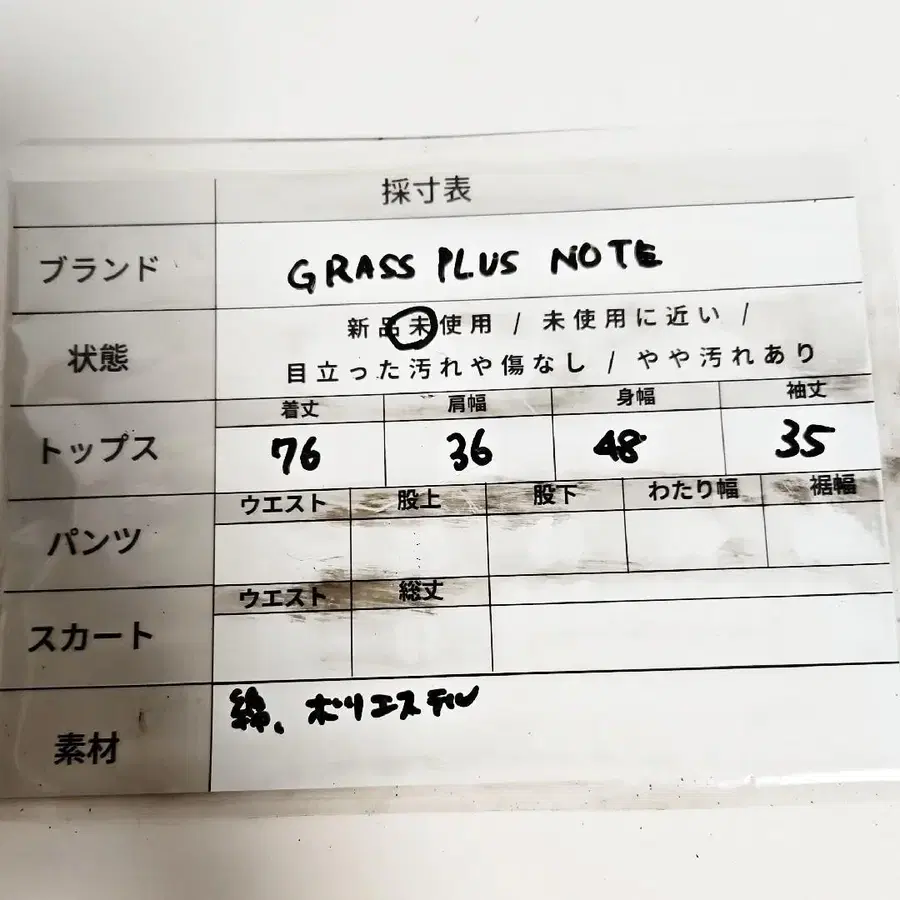 採寸表
ブランド GRASS PLUS NOTE
状態 新品未使用 / 未使用に近い /
目立った汚れや傷なし / やや汚れあり
着丈 肩幅 身幅 袖丈
トップス 76 36 48 35
ウエスト 股上 股下 わたり幅 裾幅
パンツ
ウエスト 総丈
スカート
素材 綿、ポリエステル